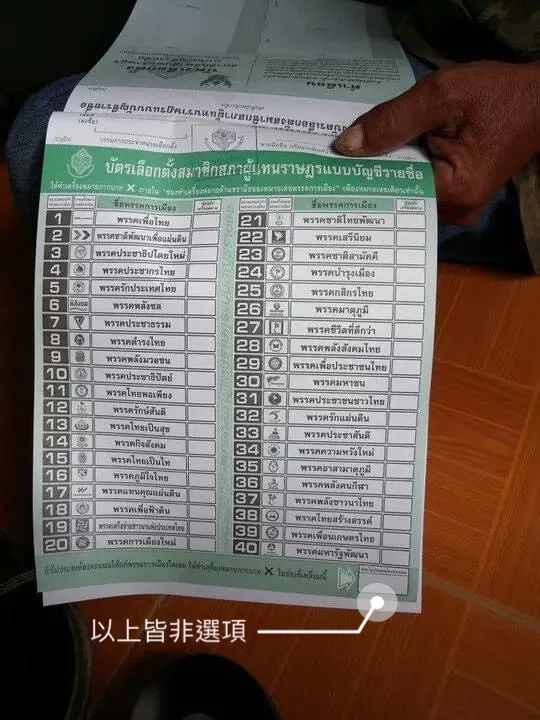 คำเตือน
บัตรเลือกตั้งสมาชิกสภาผู้แทนราษฎรแบบบัญชีรายชื่อ
ให้ทำเครื่องหมายกากบาท X ภายใน "ช่องทำเครื่องหมายด้านขวามือของหมายเลขพรรคการเมือง" เพียงหมายเลขเดียวเท่านั้น
ชื่อพรรคการเมือง
1 พรรคเพื่อไทย
2 พรรคชาติพัฒนาเพื่อแผ่นดิน
3 พรรคประชาธิปไตยใหม่
4 พรรคประชากรไทย
5 พรรครักประเทศไทย
6 พรรคพลังชล
7 พรรคประชาธรรม
8 พรรคดำรงไทย
9 พรรคพลังมวลชน
10 พรรคประชาธิปัตย์
11 พรรคไทยพอเพียง
12 พรรครักษ์สันติ
13 พรรคไทยเป็นสุข
14 พรรคกิจสังคม
15 พรรคไทยเป็นไท
16 พรรคภูมิใจไทย
17 พรรคแทนคุณแผ่นดิน
18 พรรคเพื่อฟ้าดิน
19 พรรคเครือข่ายชาวนาแห่งประเทศไทย
20 พรรคการเมืองใหม่
ชื่อพรรคการเมือง
21 พรรคชาติไทยพัฒนา
22 พรรคเสรีนิยม
23 พรรคชาติสามัคคี
24 พรรคบำรุงเมือง
25 พรรคกสิกรไทย
26 พรรคมาตุภูมิ
27 พรรคชีวิตที่ดีกว่า
28 พรรคพลังสังคมไทย
29 พรรคเพื่อประชาชนไทย
30 พรรคมหาชน
31 พรรคประชาชนชาวไทย
32 พรรครักแผ่นดิน
33 พรรคประชาสันติ
34 พรรคความหวังใหม่
35 พรรคอาสามาตุภูมิ
36 พรรคพลังคนกีฬา
37 พรรคพลังชาวนาไทย
38 พรรคไทยสร้างสรรค์
39 พรรคเพื่อนเกษตรไทย
40 พรรคมหารัฐพัฒนา
ถ้าไม่ประสงค์ลงคะแนนให้แก่พรรคการเมืองใดเลย ให้ทำเครื่องหมายกากบาท X ในช่องสี่เหลี่ยมนี้
以上皆非選項